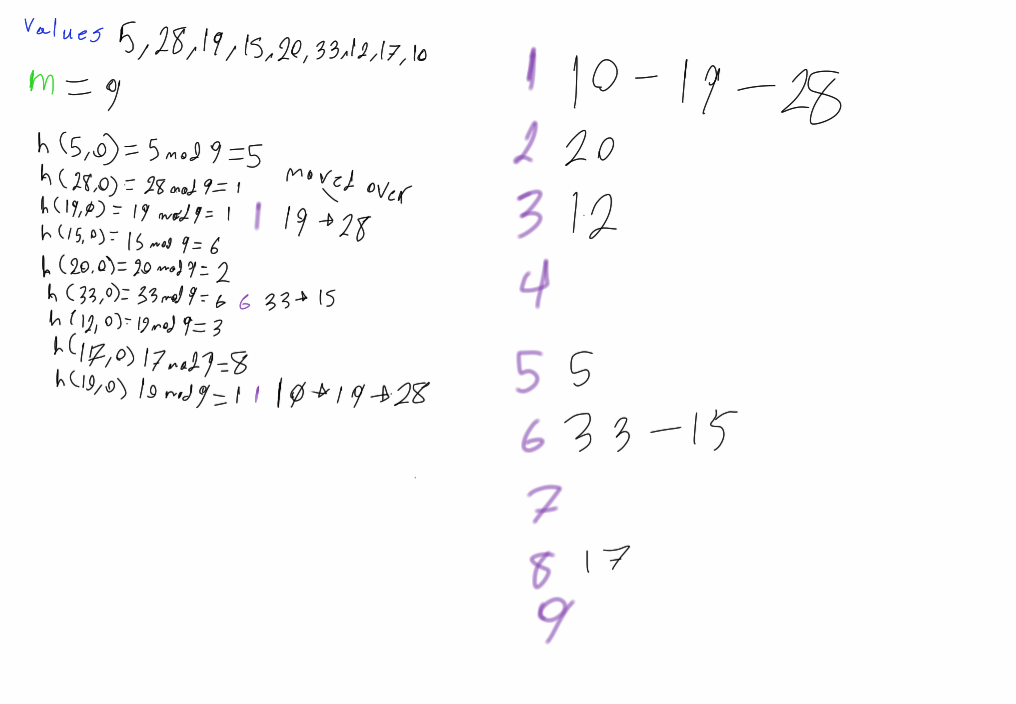 Values 5, 28, 19, 15, 20, 33, 12, 17, 10
m = 9
h(5,0) = 5 mod 9 = 5
h(28,0) = 28 mod 9 = 1
moved over
h(19,0) = 19 mod 9 = 1 1 19 → 28
h(15,0) = 15 mod 9 = 6
h(20,0) = 20 mod 9 = 2
h(33,0) = 33 mod 9 = 6 6 33 → 15
h(12,0) = 12 mod 9 = 3
h(17,0) 17 mod 9 = 8
h(10,0) 10 mod 9 = 1 1 10 → 19 → 28
1 10 - 19 - 28
2 20
3 12
4
5 5
6 33 - 15
7
8 17
9